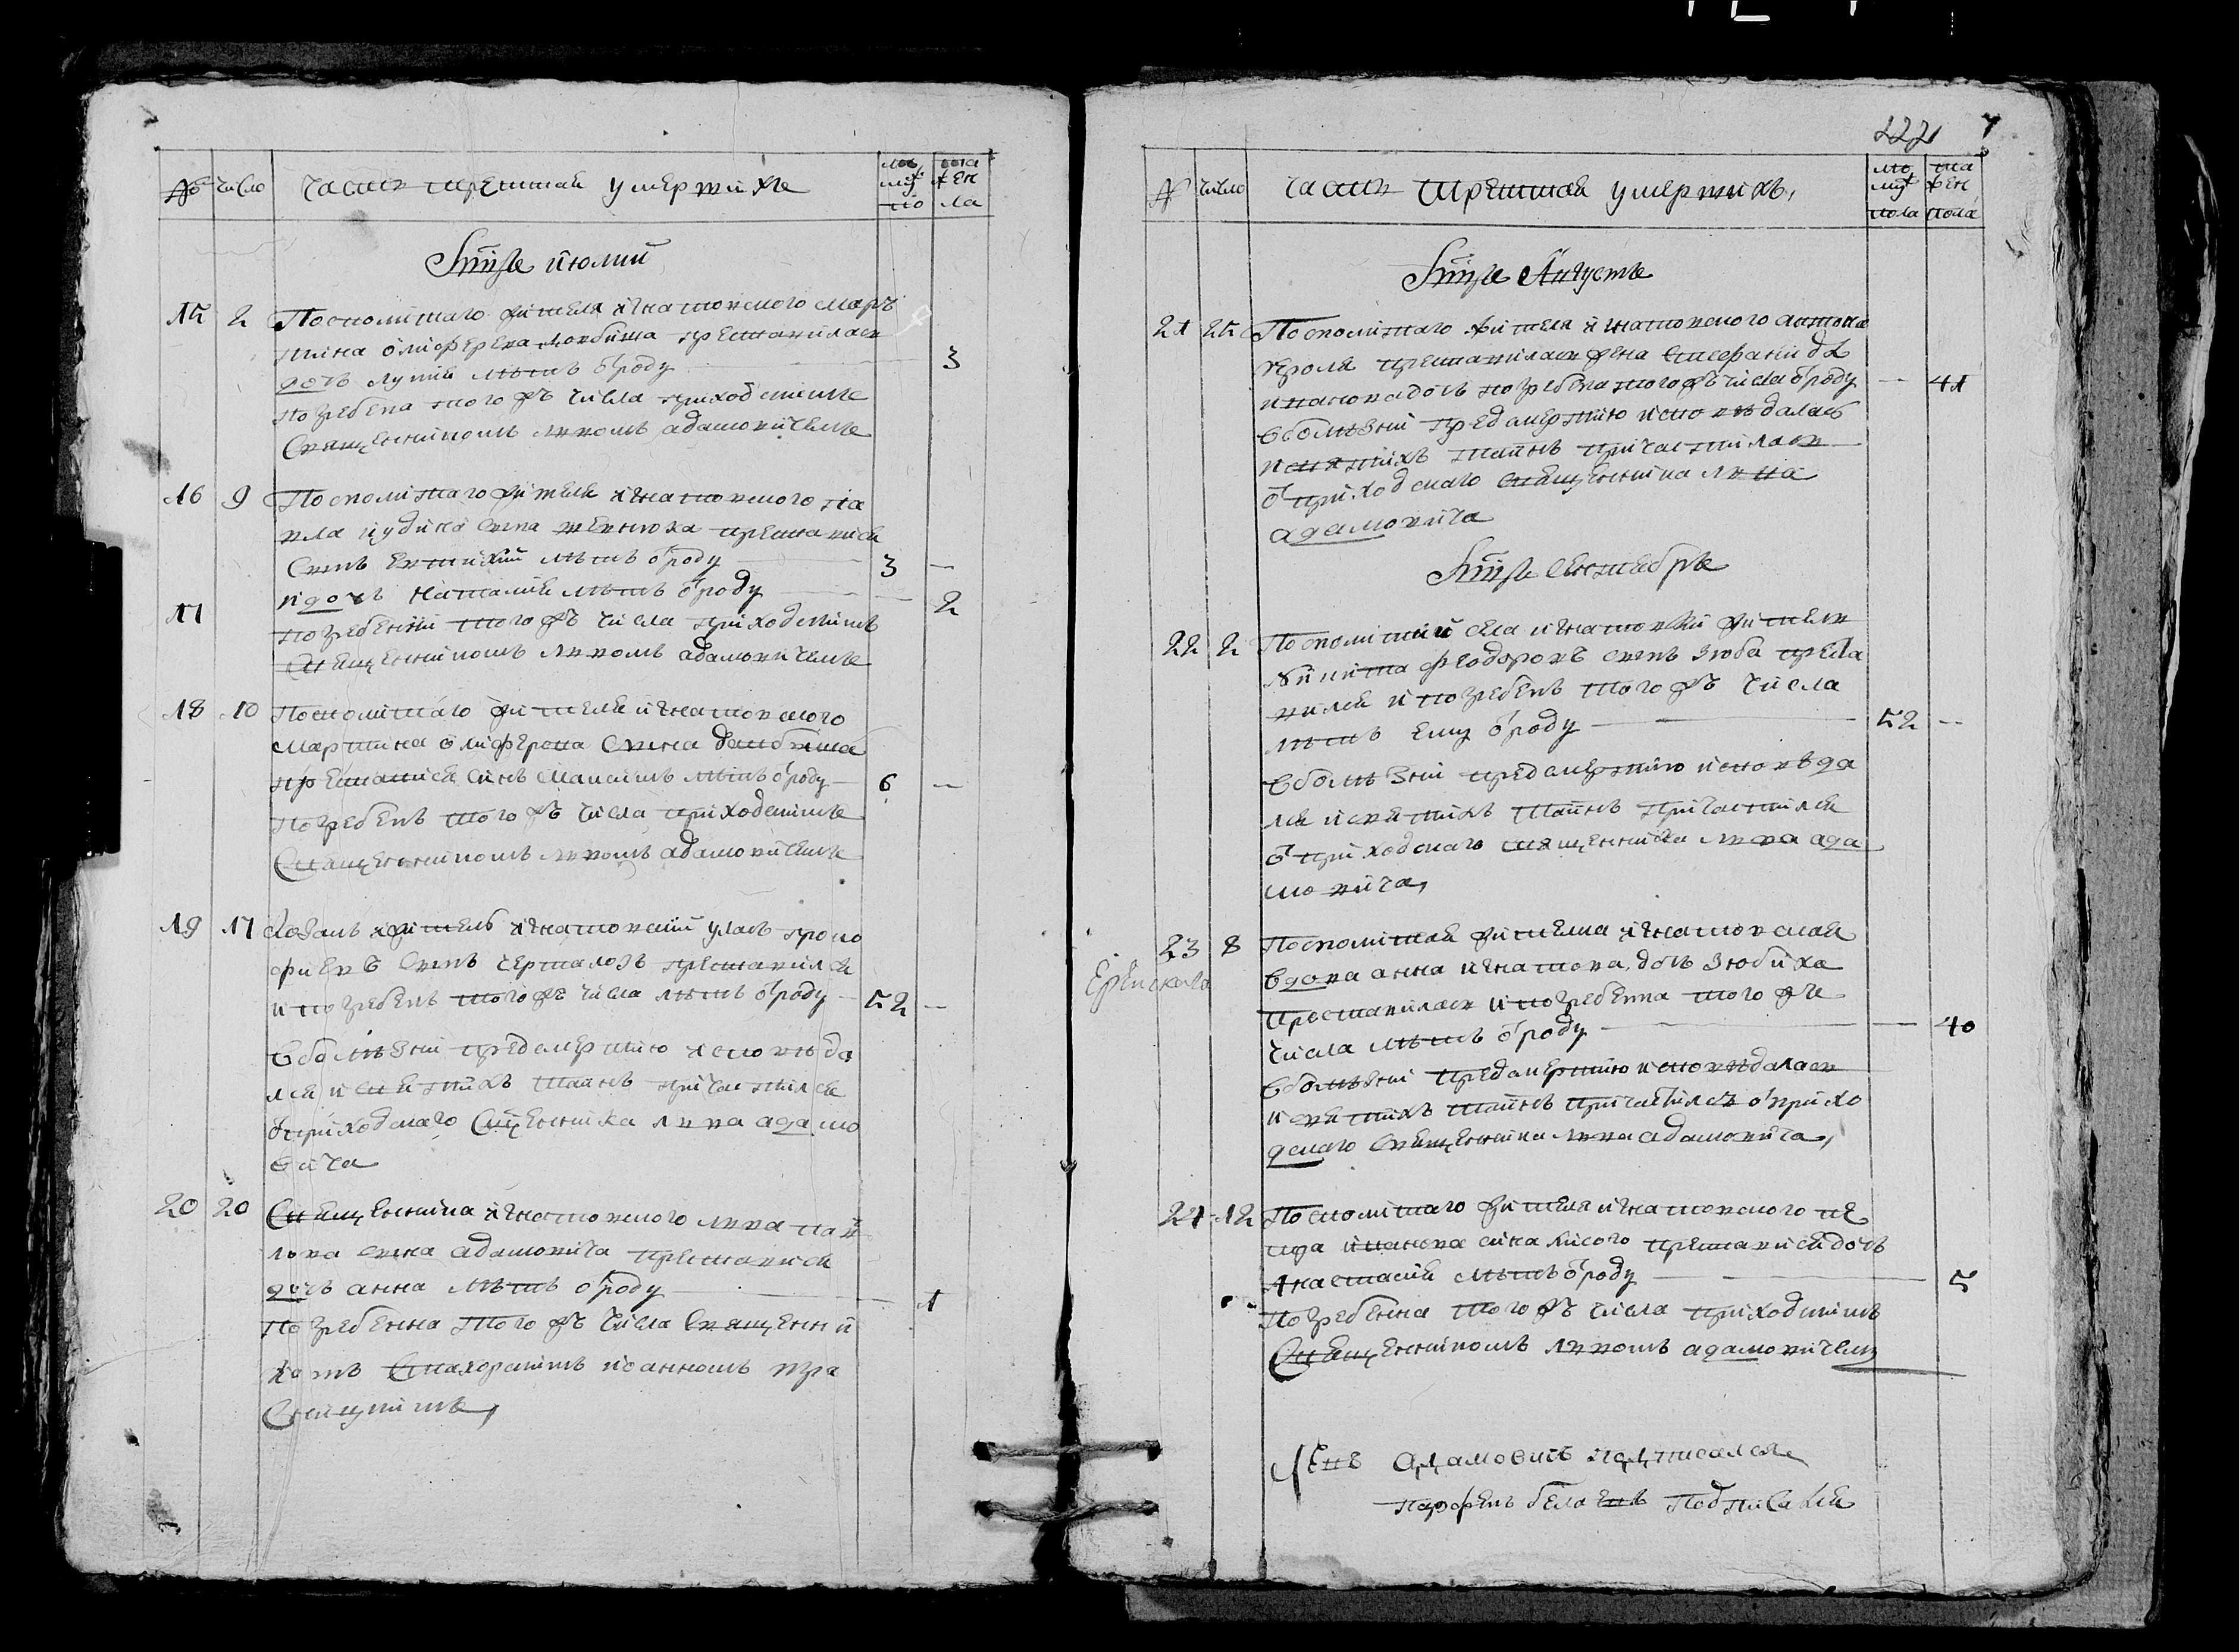 № число Часть третяя умершихъ
мужа пола жен пола
Мца июлий
15 2 Посполитаго жителя игнатовского мар
тина олиферова преставилась
дочь лѣтъ ѿроду 3
погребена того жъ числа приходскимъ
Священникомъ Лвомъ адамовичемъ
16 9 Посполитаго жителя игнатовского па
вла сина преставися
синъ Евтихий лѣтъ ѿроду 3 —
17 и дочь Наталия лѣтъ ѿроду — 2
погребенни того жъ числа приходскимъ
Священникомъ Лвомъ адамовичемъ
18 10 Посполитаго жителя игнатовского
Мартина олиферова сина
преставися синъ лѣтъ ѿроду 6 —
погребенъ того жъ числа приходскимъ
Священникомъ Лвомъ адамовичемъ
19 17 Козакъ житель игнатовский улас проко
фиевъ синъ преставился
и погребенъ того жъ числа лѣтъ ѿроду 52 —
в болѣзни предсмертию исповѣда
лся и святихъ таинъ причастился
ѿ приходского Сщенника лва адамо
вича
20 20 Священника игнатовского лва пав
лова сина адамовича преставися
дочь анна лѣтъ ѿроду 1
погребенна того жъ числа священни
комъ иоанномъ

222 7
№ число Часть третяя умершихъ,
мужа пола жен пола
Мца Августъ
21 25 Посполитаго жителя игнатовского антона
преставилась жена
иванова дочь погребена того жъ числа ѿроду — 41
в болѣзни предсмертию исповѣдалась
и святихъ таинъ причастилася
ѿ приходского священника лва
адамовича
Мца Сентебръ
22 2 Посполитий села игнатовки житель
Никита феодоровъ синъ Зюба преста
вился и погребенъ того жъ числа
лѣтъ ему ѿроду 52 —
в болѣзни предсмертию исповѣда
лся и святихъ таинъ причастился
ѿ приходского священника лва ада
мовича,
23 8 Посполитая жителка игнатовская
вдова анна игнатова дочь Зюбиха
преставилася и погребенна того же
числа лѣтъ ѿроду — 40
в болѣзни предсмертию исповѣдалася
и святихъ таинъ причастилася ѿ прихо
дского священника лва адамовича,
24 12 Посполитаго жителя игнатовского
иванова сина лисого преставися дочь
Анастасия лѣтъ ѿроду 5
погребенна того жъ числа приходскимъ
Священникомъ лвомъ адамовичем
Левъ Адамовичъ подписался
подписался